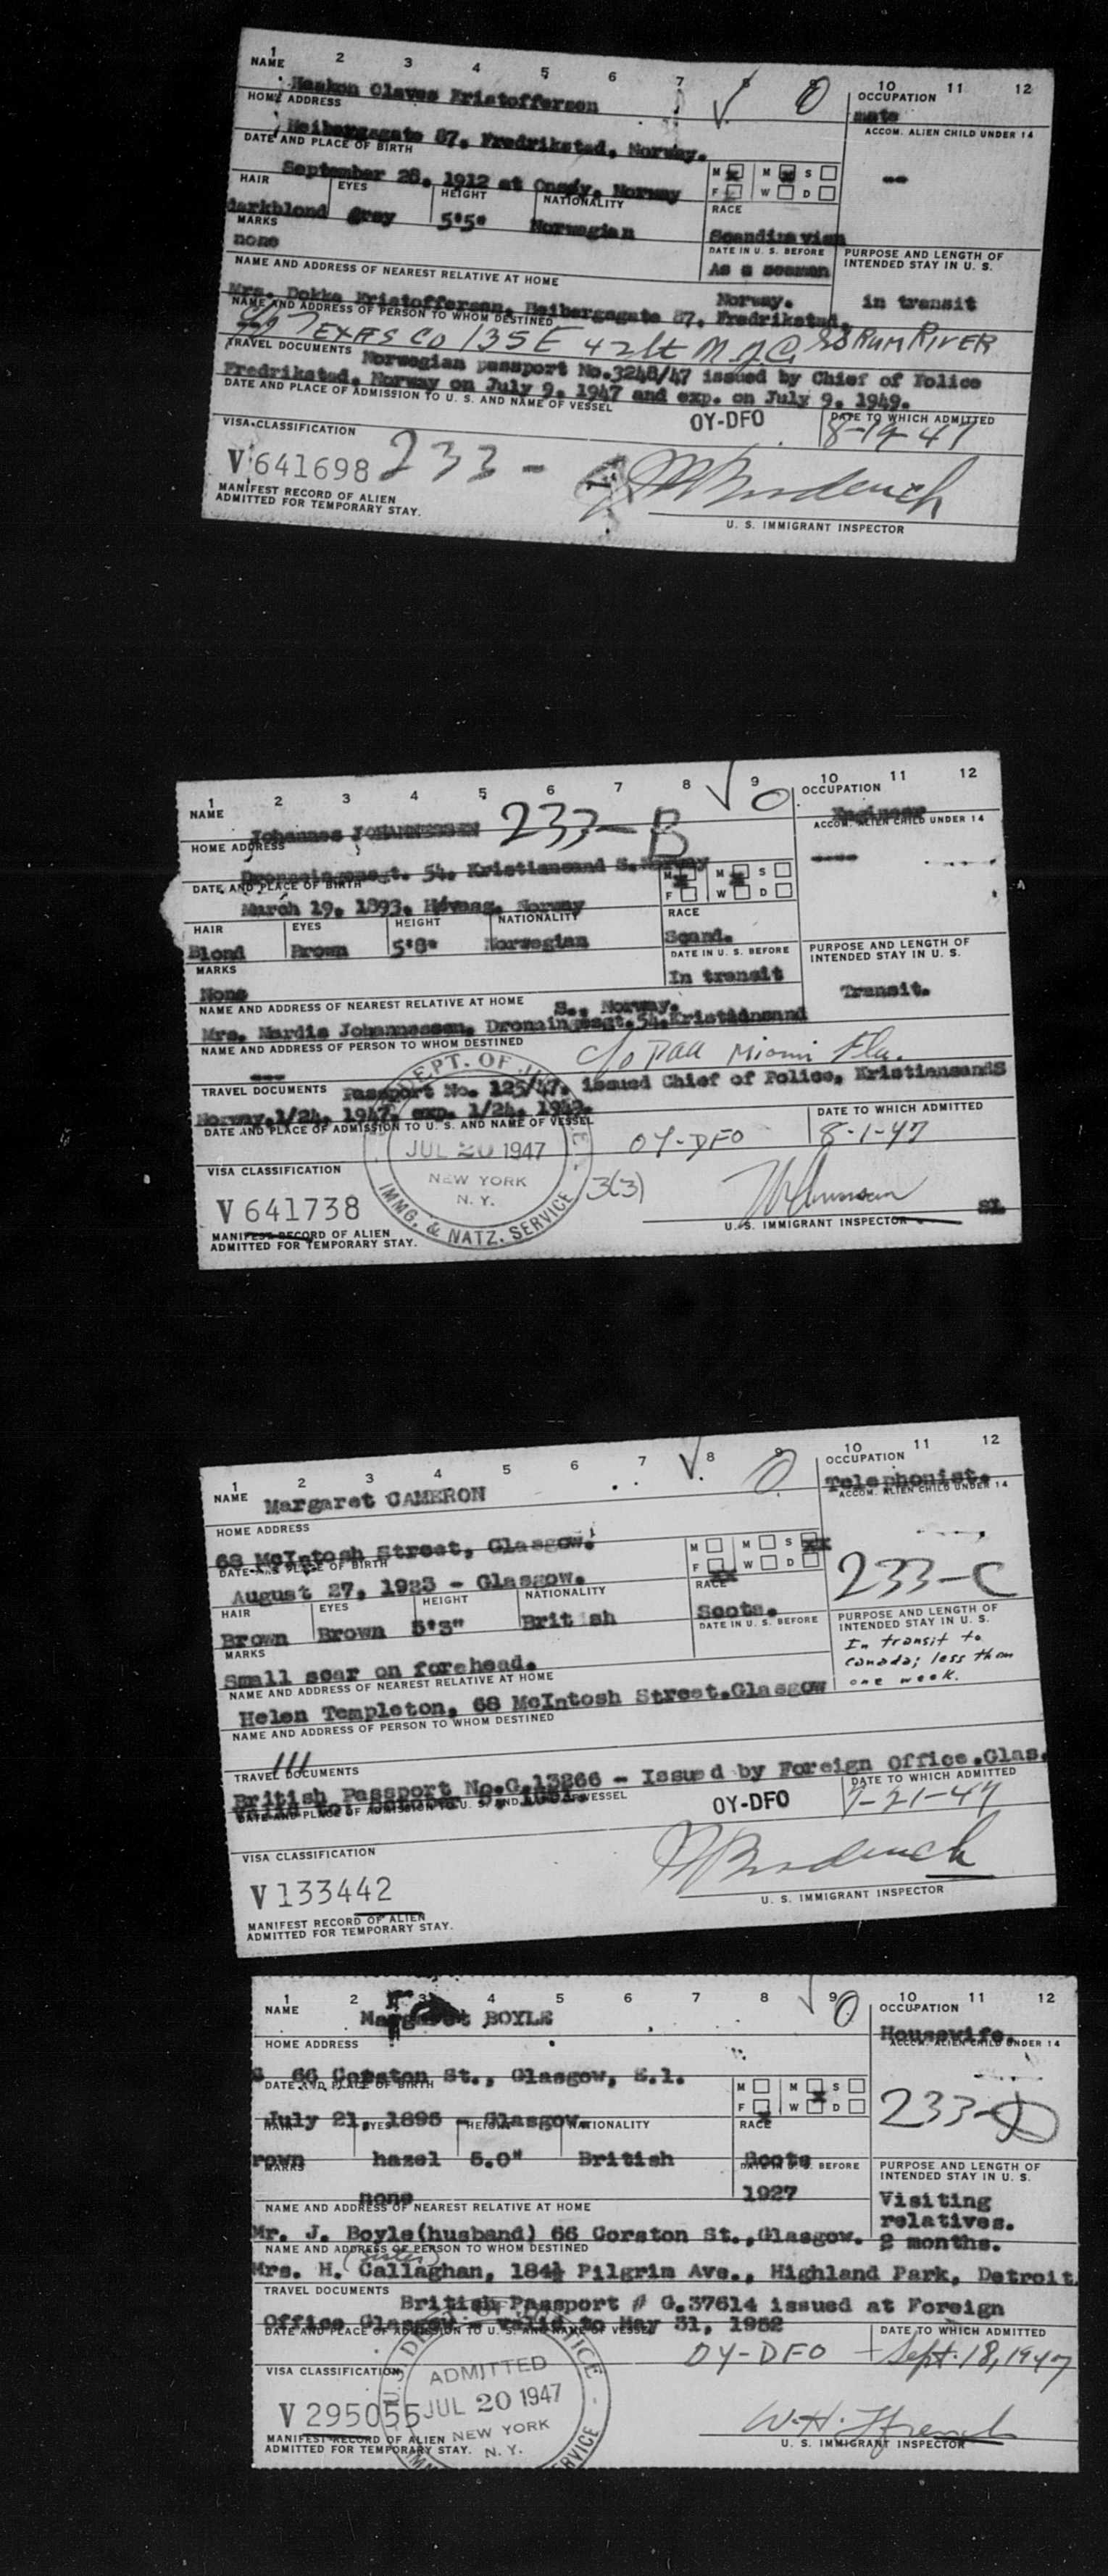 1 2 3 4 5 6 7 8 9 10 11 12
NAME Haakon Olaves Kristoffersen
OCCUPATION mate
HOME ADDRESS
ACCOM. ALIEN CHILD UNDER 14
Heibergsgate 87, Fredrikstad, Norway. --
DATE AND PLACE OF BIRTH
M M S
F W D
September 28, 1912 at Onsøy, Norway
HAIR EYES HEIGHT NATIONALITY RACE
darkblond grey 5'5" Norwegian Scandinavian
MARKS DATE IN U. S. BEFORE PURPOSE AND LENGTH OF INTENDED STAY IN U. S.
none As a seaman
NAME AND ADDRESS OF NEAREST RELATIVE AT HOME
Norway. in transit
Mrs. Dokka Kristoffersen, Heibergsgate 87, Fredrikstad,
NAME AND ADDRESS OF PERSON TO WHOM DESTINED
c/o TEXAS CO 135 E 42 St N.Y.C. RUM RIVER
TRAVEL DOCUMENTS Norwegian passport No.3248/47 issued by Chief of Police
Fredrikstad, Norway on July 9, 1947 and exp. on July 9, 1949.
DATE AND PLACE OF ADMISSION TO U. S. AND NAME OF VESSEL
OY-DFO DATE TO WHICH ADMITTED
8-19-47
VISA CLASSIFICATION
V 641698 233-
MANIFEST RECORD OF ALIEN
ADMITTED FOR TEMPORARY STAY.
U. S. IMMIGRANT INSPECTOR
1 2 3 4 5 6 7 8 9 10 11 12
NAME Johannes JOHANNESSEN 233-B
OCCUPATION Engineer
HOME ADDRESS
ACCOM. ALIEN CHILD UNDER 14
Dronningensgt. 54, Kristiansand S. Norway ----
DATE AND PLACE OF BIRTH
M M S
F W D
March 19, 1893, Høvaag, Norway
HAIR EYES HEIGHT NATIONALITY RACE
Blond Brown 5'8" Norwegian Scand.
MARKS DATE IN U. S. BEFORE PURPOSE AND LENGTH OF INTENDED STAY IN U. S.
None In transit
NAME AND ADDRESS OF NEAREST RELATIVE AT HOME
S., Norway. Transit.
Mrs. Mardis Johannessen, Dronningensgt. 54, Kristiansand
NAME AND ADDRESS OF PERSON TO WHOM DESTINED
--- c/o PAA Miami Fla.
TRAVEL DOCUMENTS Passport No. 125/47, issued Chief of Police, KristiansandS
Norway, 1/24, 1947, exp. 1/24, 1949.
DATE AND PLACE OF ADMISSION TO U. S. AND NAME OF VESSEL
OY-DFO DATE TO WHICH ADMITTED
8-1-47
DEPT. OF
JUL 20 1947
NEW YORK
N. Y.
IMMG. & NATZ. SERVICE
3(3)
VISA CLASSIFICATION
V 641738
MANIFEST RECORD OF ALIEN
ADMITTED FOR TEMPORARY STAY.
U. S. IMMIGRANT INSPECTOR
1 2 3 4 5 6 7 8 9 10 11 12
NAME Margaret CAMERON
OCCUPATION Telephonist.
HOME ADDRESS
ACCOM. ALIEN CHILD UNDER 14
68 McIntosh Street, Glasgow.
DATE AND PLACE OF BIRTH
M M S
F W D
August 27, 1923 - Glasgow.
233-C
HAIR EYES HEIGHT NATIONALITY RACE
Brown Brown 5'3" British Scots.
MARKS DATE IN U. S. BEFORE PURPOSE AND LENGTH OF INTENDED STAY IN U. S.
In transit to Canada; less than one week.
Small scar on forehead.
NAME AND ADDRESS OF NEAREST RELATIVE AT HOME
Helen Templeton, 68 McIntosh Street.Glasgow
NAME AND ADDRESS OF PERSON TO WHOM DESTINED
TRAVEL DOCUMENTS
British Passport No.G.13266 - Issued by Foreign Office.Glas.
DATE AND PLACE OF ADMISSION TO U. S. AND NAME OF VESSEL
OY-DFO DATE TO WHICH ADMITTED
7-21-47
VISA CLASSIFICATION
V 133442
MANIFEST RECORD OF ALIEN
ADMITTED FOR TEMPORARY STAY.
U. S. IMMIGRANT INSPECTOR
1 2 3 4 5 6 7 8 9 10 11 12
NAME Margaret BOYLE
OCCUPATION Housewife.
HOME ADDRESS
ACCOM. ALIEN CHILD UNDER 14
66 Corston St., Glasgow, E.1.
DATE AND PLACE OF BIRTH
M M S
F W D
July 21, 1895 - Glasgow.
233-D
HAIR EYES HEIGHT NATIONALITY RACE
rown hazel 5.0" British Scots
MARKS DATE IN U. S. BEFORE PURPOSE AND LENGTH OF INTENDED STAY IN U. S.
none 1927 Visiting relatives.
NAME AND ADDRESS OF NEAREST RELATIVE AT HOME
Mr. J. Boyle(husband) 66 Corston St.,Glasgow. 2 months.
NAME AND ADDRESS OF PERSON TO WHOM DESTINED
(Sister)
Mrs. H. Callaghan, 184½ Pilgrim Ave., Highland Park, Detroit.
TRAVEL DOCUMENTS
British Passport # G.37614 issued at Foreign
Office Glasgow - valid to May 31, 1952
DATE AND PLACE OF ADMISSION TO U. S. AND NAME OF VESSEL
OY-DFO DATE TO WHICH ADMITTED
Sept. 18, 1947
ADMITTED
JUL 20 1947
NEW YORK
N. Y.
VISA CLASSIFICATION
V 295055
MANIFEST RECORD OF ALIEN
ADMITTED FOR TEMPORARY STAY.
W. H. French
U. S. IMMIGRANT INSPECTOR